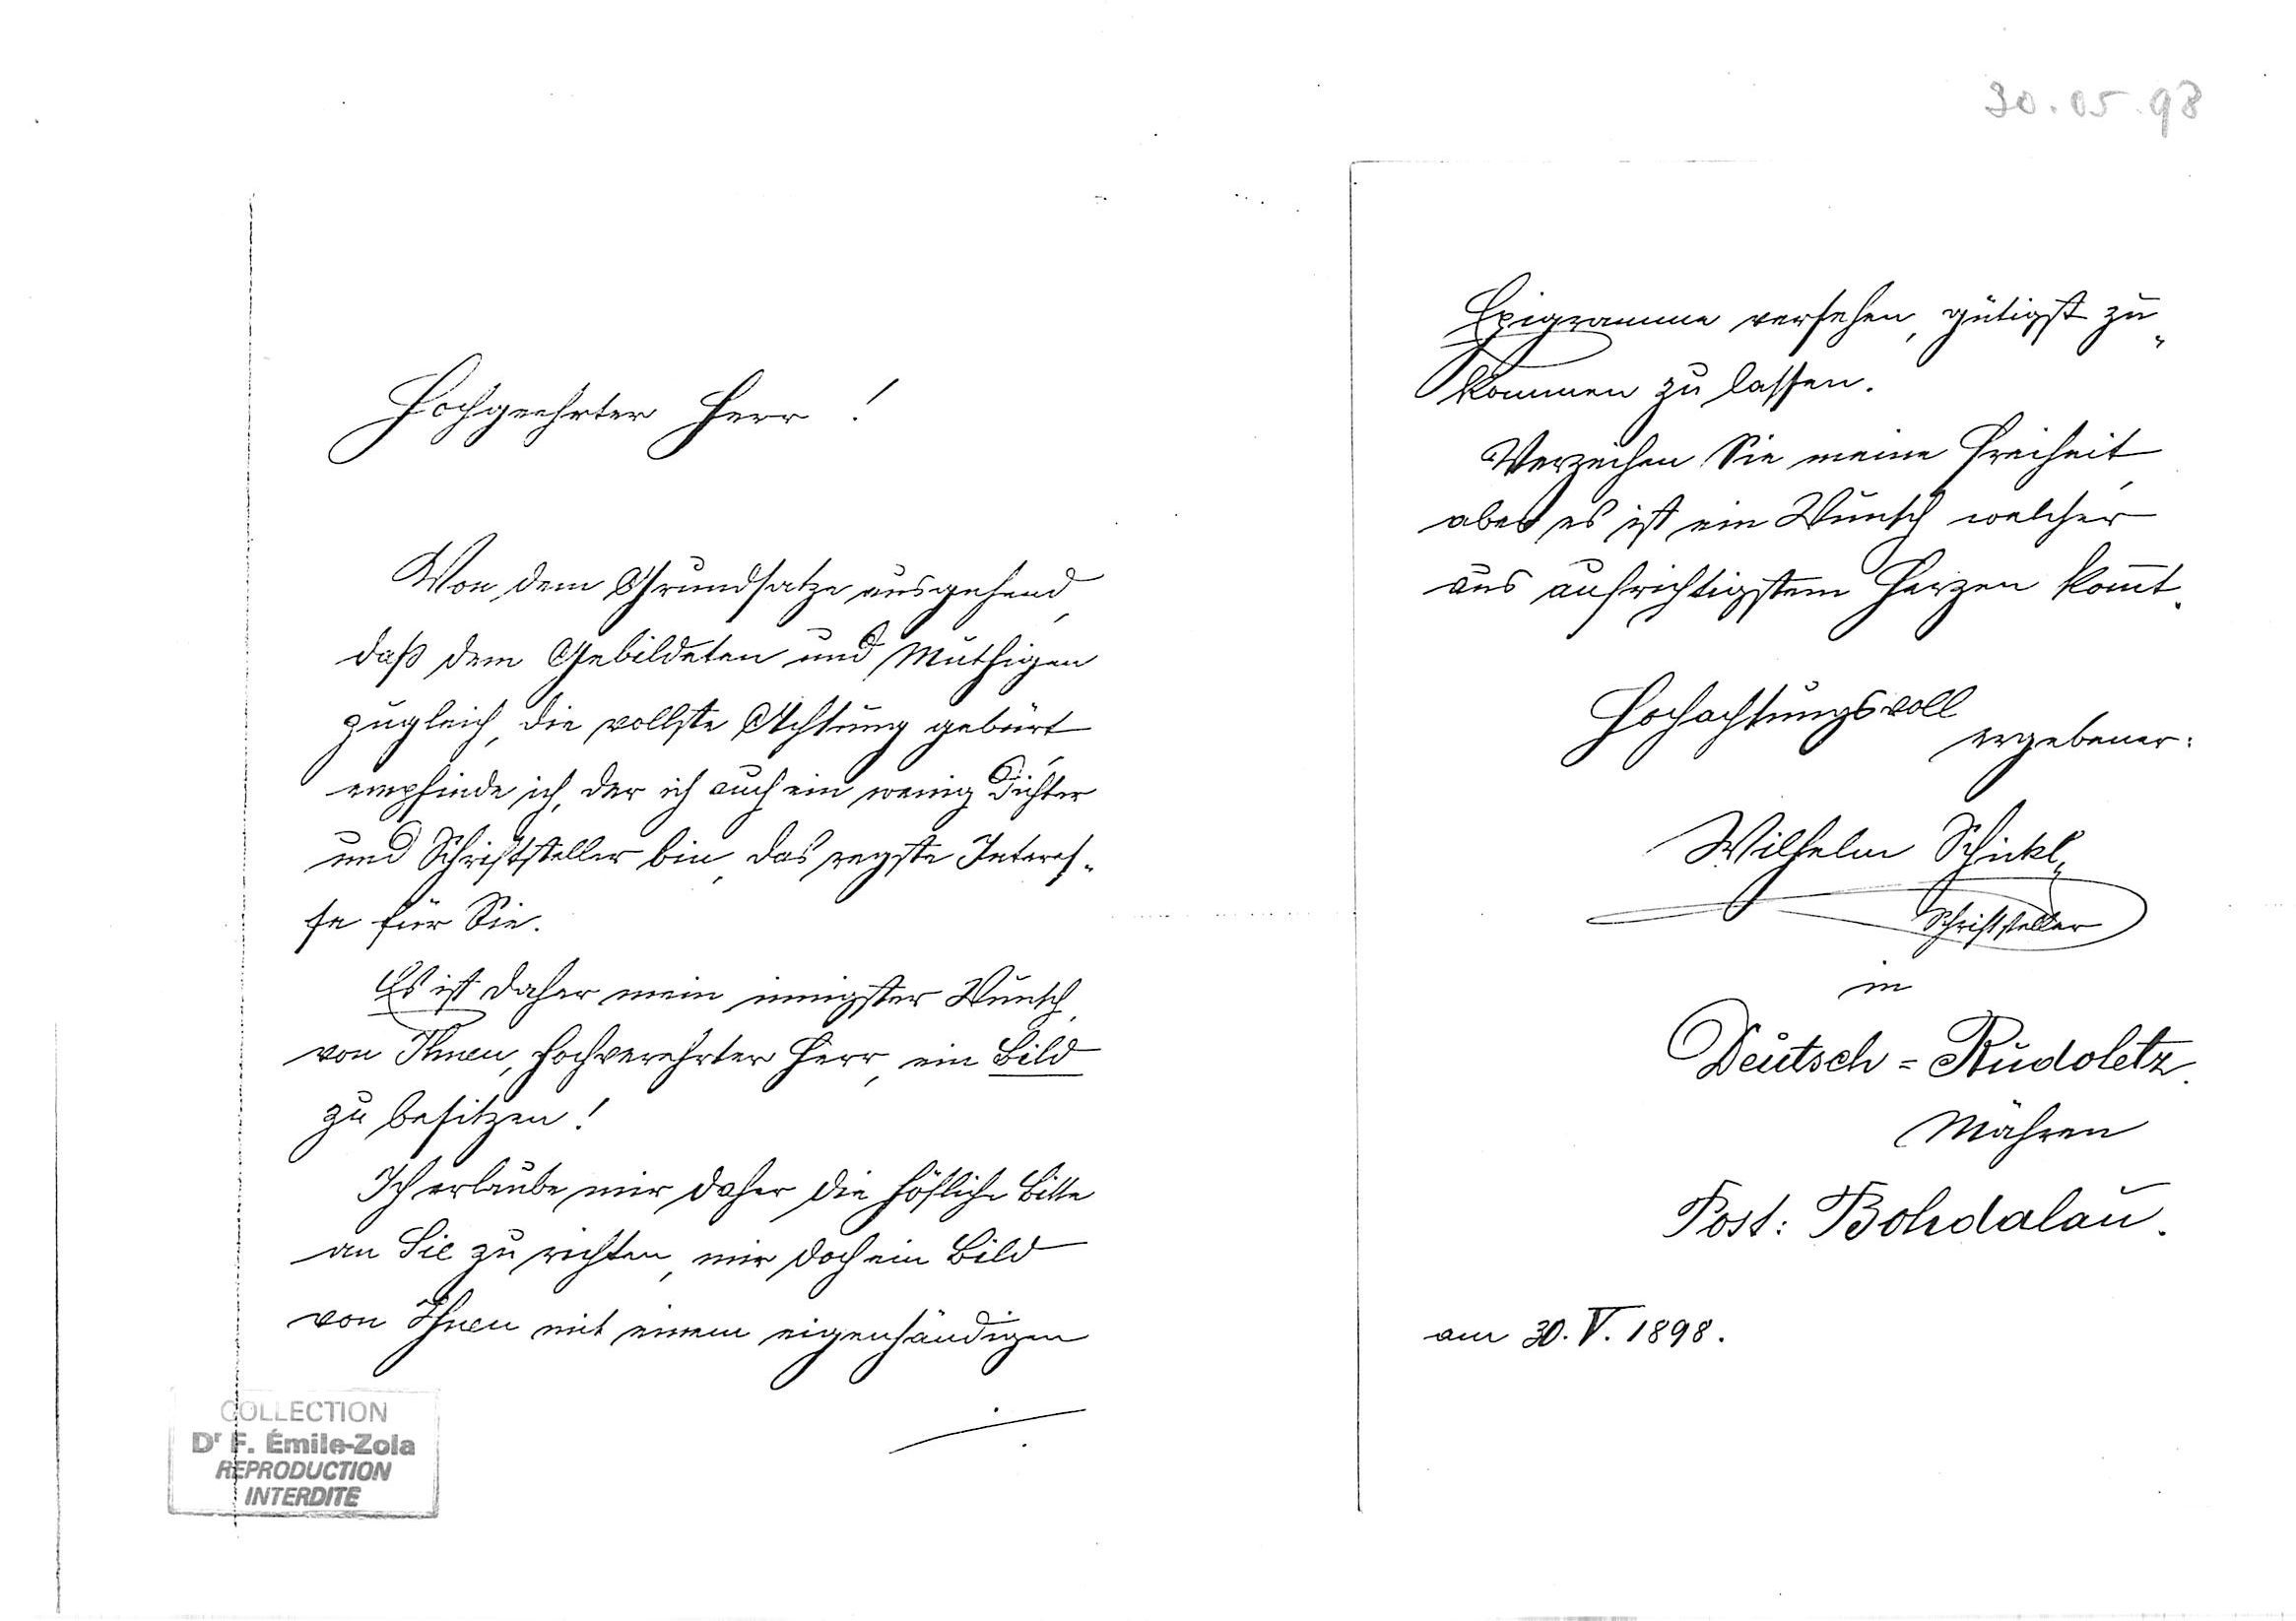 30.05.98
Hochgeehrter Herr !
Von dem Grundsatze ausgehend,
daß dem Gebildeten und Muthigen
zugleich, die vollste Achtung gebürt,
empfinde ich, der ich auch ein wenig Dichter
und Schriftsteller bin, das regste Interes-
se für Sie.
Es ist daher mein innigster Wunsch,
von Ihnen, hochverehrter Herr, ein Bild
zu besitzen!
Ich erlaube mir daher die höfliche Bitte
an Sie zu richten, mir doch ein Bild
von Ihnen mit einem eigenhändigen
COLLECTION
Dr F. Émile-Zola
REPRODUCTION
INTERDITE
Epigramme versehen, gütigst zu-
kommen zu lassen.
Verzeihen Sie meine Freiheit,
aber es ist ein Wunsch welcher
aus aufrichtigstem Herzen kom̄t.
Hochachtungsvoll
ergebener:
Wilhelm Schickl,
Schriftsteller
in
Deutsch=Rudoletz.
Mähren
Post: Bohdalau.
am 30. V. 1898.